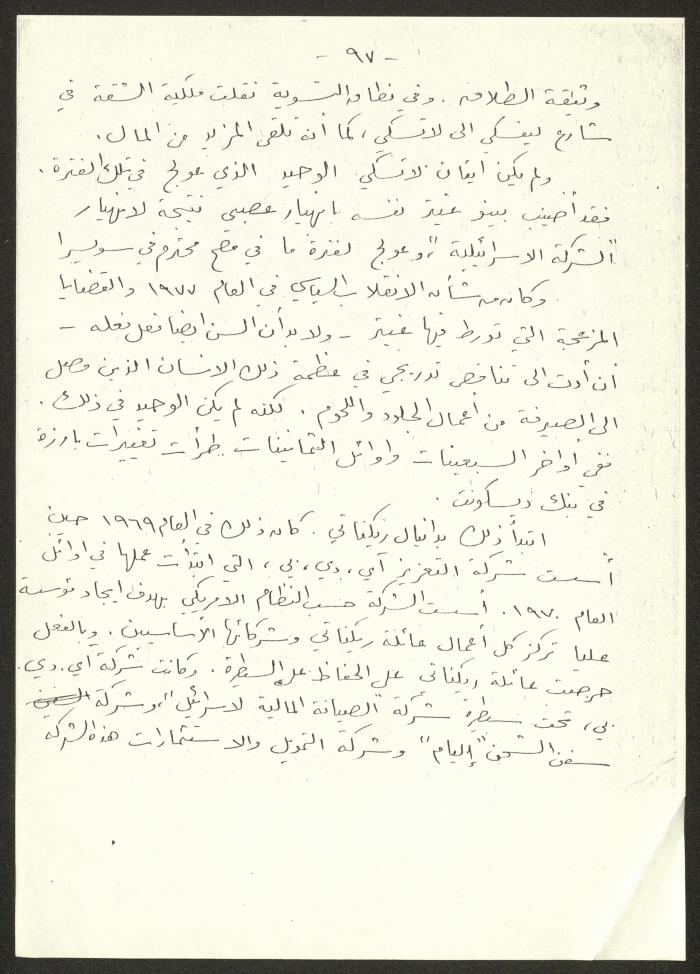 - ٩٧ -
وثيقة الطلاق . وفي نطاق التسوية نقلت ملكية الشقة في
شارع ليفسكي الى لاتسكي ، كما أنه تلقى المزيد من المال .
ولم يكن أيفان لاتسكي الوحيد الذي عولج في تلك الفترة .
فقد أصيب بينو غيتر نفسه بانهيار عصبي نتيجة لانهيار
"الشركة الاسرائيلية" ، وعولج لفترة ما في مصح محترم في سويسرا
وكان من شأن الانقلاب السياسي في العام ١٩٧٧ والقضايا
المزعجة التي تورط فيها غيتر - ولا بد أن السن ايضا فعل فعله -
أن أدت الى تناقص تدريجي في عظمة ذلك الانسان الذي وصل
الى الصيرفة من أعمال الجلود واللحوم . لكنه لم يكن الوحيد في ذلك .
ففي أواخر السبعينات واوائل الثمانينات طرأت تغييرات بارزة
في بنك ديسكونت .
ابتدأ ذلك بدانيال ريكناتي . كان ذلك في العام ١٩٦٩ حين
أسست شركة التعزيز آي ، دي ، بي ، التي ابتدأت عملها في اوائل
العام ١٩٧٠ . أسست الشركة حسب النظام الامريكي بهدف ايجاد مؤسسة
عليا تركز كل أعمال عائلة ريكناتي وشركائها الأساسيين . وبالفعل
حرصت عائلة ريكناتي على الحفاظ على السيطرة . وكانت شركة آي . دي .
بي ، تحت سيطرة شركة "الصيانة المالية لاسرائيل" ، وشركة
سفن الشحن "إليام" وشركة التمويل والاستثمارات هذه الشركة